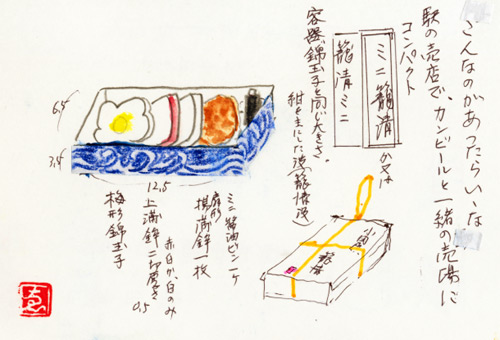 こんなのがあったらいいな
駅の売店で、カンビールと一緒の売場に
コンパクト
ミニ籠清
か又は
籠清ミニ
容器錦玉子と同じ大きさ。
紺を主にした波(籠清波)
小田原
籠清
6.5
3.5
12.5
ミニ醤油ビン一ケ
扇形
揚蒲鉾一枚
赤白か、白のみ
上蒲鉾二切厚さ
0.5
梅形錦玉子